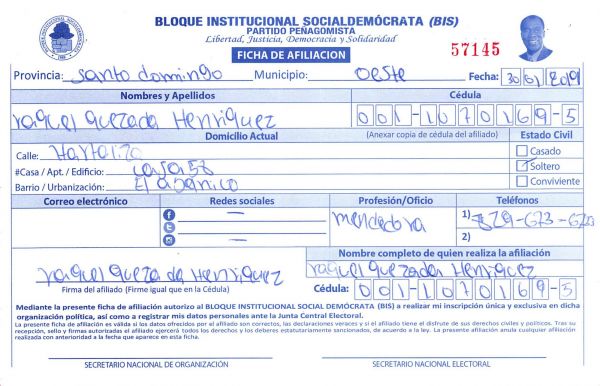 BLOQUE INSTITUCIONAL SOCIALDEMÓCRATA (BIS)
PARTIDO PEÑAGOMISTA
Libertad, Justicia, Democracia y Solidaridad
FICHA DE AFILIACION
57145
Provincia: Santo domingo Municipio: Oeste Fecha: 30/01/2019
Nombres y Apellidos Cédula
raquel quezada Henriquez 001-1070169-5
Domicilio Actual (Anexar copia de cédula del afiliado) Estado Civil
Calle: Casado
#Casa / Apt. / Edificio: casa 58 Soltero
Barrio / Urbanización: El abanico Conviviente
Correo electrónico Redes sociales Profesión/Oficio Teléfonos
— 1) 829-673-
— 2)
Nombre completo de quien realiza la afiliación
raquel quezada Henriquez raquel quezada Henriquez
Firma del afiliado (Firme igual que en la Cédula) Cédula: 001-1070169-5
Mediante la presente ficha de afiliación autorizo al BLOQUE INSTITUCIONAL SOCIAL DEMÓCRATA (BIS) a realizar mi inscripción única y exclusiva en dicha
organización política, así como a registrar mis datos personales ante la Junta Central Electoral.
La presente ficha de afiliación es válida si los datos ofrecidos por el afiliado son correctos, las declaraciones veraces y si el afiliado tiene el disfrute de sus derechos civiles y políticos. Tras su
recepción, sello y firmas autorizadas el afiliado ejercerá todos los derechos y los deberes estatutariamente sancionados, de acuerdo a la ley. La presente afiliación anula cualquier afiliación
realizada con anterioridad a la fecha que aparece en esta ficha.
SECRETARIO NACIONAL DE ORGANIZACIÓN SECRETARIO NACIONAL ELECTORAL